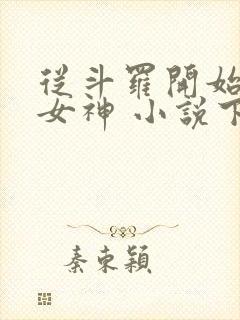 從斗羅開始
女神 小說下
秦束穎